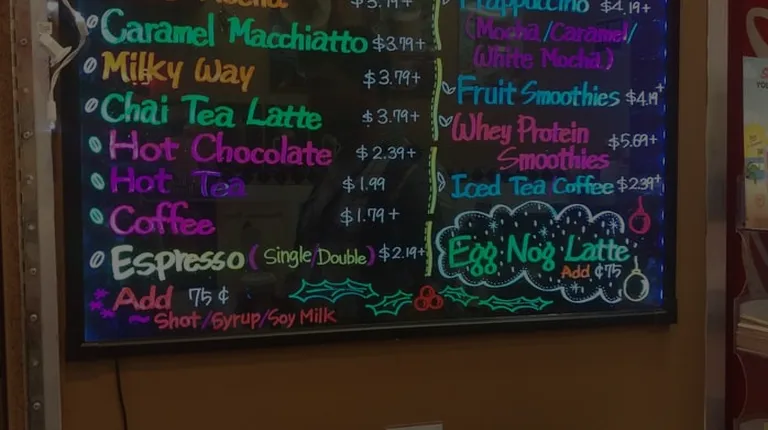 Caramel Macchiatto $3.79+
Milky Way $3.79+
Chai Tea Latte $3.79+
Hot Chocolate $2.39+
Hot Tea $1.99
Coffee $1.79+
Espresso (Single/Double) $2.19+
Add 75¢
~ Shot/Syrup/Soy Milk
Frappuccino $4.19+
(Mocha/Caramel/
White Mocha)
Fruit Smoothies $4.19+
Whey Protein $5.69+
Smoothies
Iced Tea Coffee $2.39+
Egg Nog Latte
Add ¢75